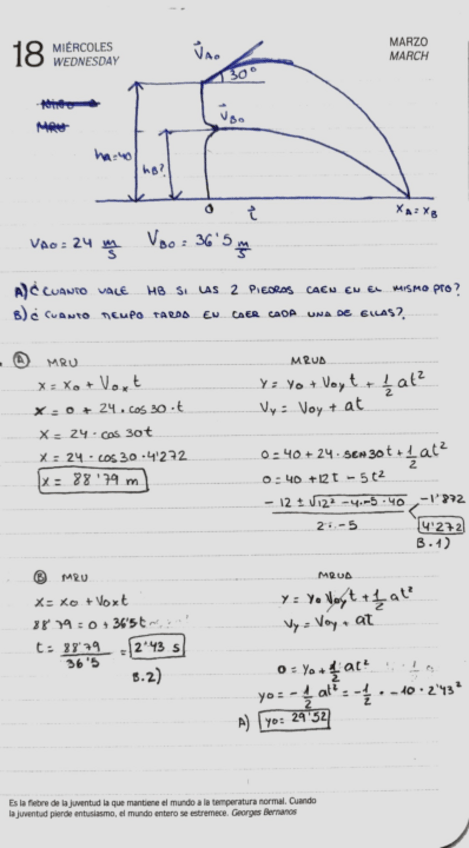 18 MIÉRCOLES
WEDNESDAY
MARZO
MARCH
V⃗A0
30°
MRU
V⃗B0
hA=40
hB?
0
t⃗
XA = XB
VA0 = 24 m/s VB0 = 36'5 m/s
A) ¿CUANTO VALE HB SI LAS 2 PIEDRAS CAEN EN EL MISMO PTO?
B) ¿CUANTO TIEMPO TARDA EN CAER CADA UNA DE ELLAS?
A MRU
x = x0 + V0x t
x = 0 + 24 · cos 30 · t
x = 24 · cos 30t
x = 24 · cos 30 · 4'272
x = 88'79 m
MRUA
Y = Y0 + V0y t + 1/2 at²
Vy = V0y + at
0 = 40 + 24 · SEN 30t + 1/2 at²
0 = 40 + 12t - 5t²
-12 ± √12² - 4·-5·40 / 2·-5 < -1'872
4'272
B.1)
B MRU
x = x0 + V0x t
88'79 = 0 + 36'5t
t = 88'79 / 36'5 = 2'43 s
B.2)
MRUA
Y = Y0 V0y t + 1/2 at²
Vy = V0y + at
0 = Y0 + 1/2 at²
Y0 = - 1/2 at² = - 1/2 · -10 · 2'43²
A) Y0 = 29'52
Es la fiebre de la juventud la que mantiene el mundo a la temperatura normal. Cuando
la juventud pierde entusiasmo, el mundo entero se estremece. Georges Bernanos